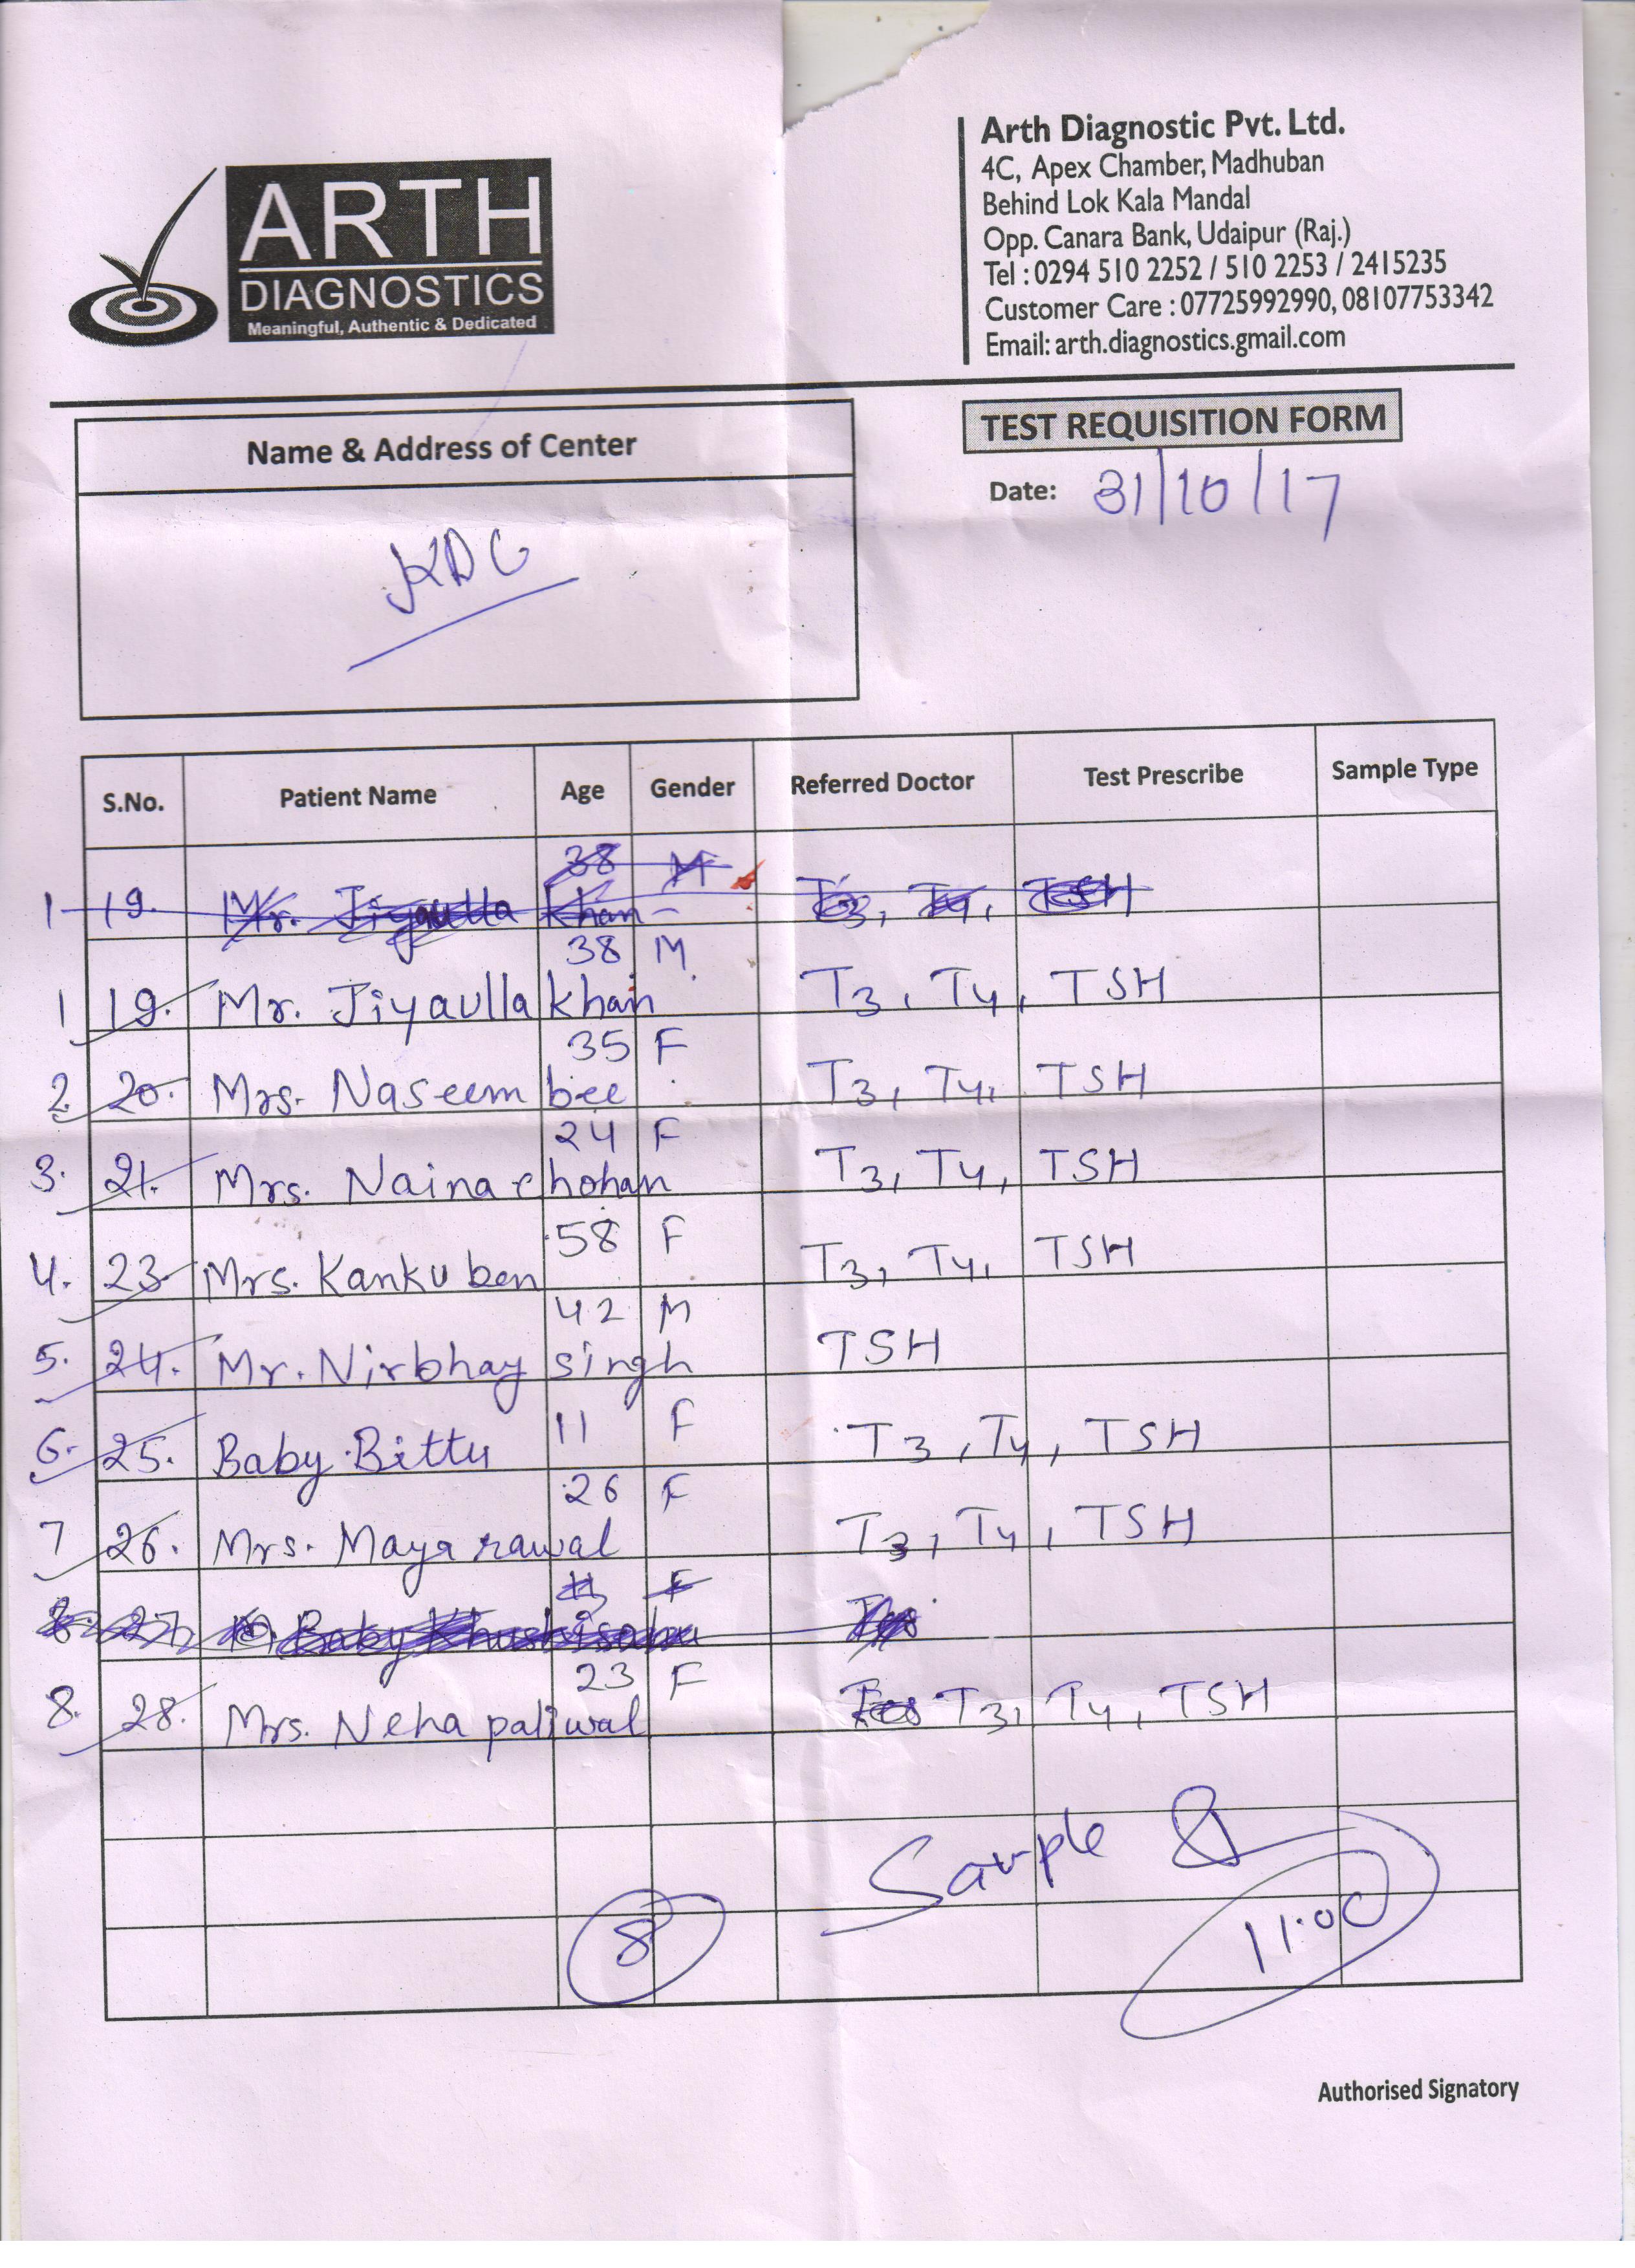 ARTH
DIAGNOSTICS
Meaningful, Authentic & Dedicated
Arth Diagnostic Pvt. Ltd.
4C, Apex Chamber, Madhuban
Behind Lok Kala Mandal
Opp. Canara Bank, Udaipur (Raj.)
Tel : 0294 510 2252 / 510 2253 / 2415235
Customer Care : 07725992990, 08107753342
Email: arth.diagnostics.gmail.com
Name & Address of Center
TEST REQUISITION FORM
Date: 31/10/17
KDC
S.No. Patient Name Age Gender Referred Doctor Test Prescribe Sample Type
1 19. Mr. Jiyaulla khan 38 M T3, T4, TSH
1 19. Mr. Jiyaulla khan 38 M T3, T4, TSH
2. 20. Mrs. Naseem bee 35 F T3, T4, TSH
3. 21. Mrs. Naina chohan 24 F T3, T4, TSH
4. 23. Mrs. Kanku ben 58 F T3, T4, TSH
5. 24. Mr. Nirbhay singh 42 M TSH
6. 25. Baby Bittu 11 F T3, T4, TSH
7 26. Mrs. Maya rawal 26 F T3, T4, TSH
8. 27. Baby F
8. 28. Mrs. Neha paliwal 23 F T3, T4, TSH
Sample
8
11:00
Authorised Signatory